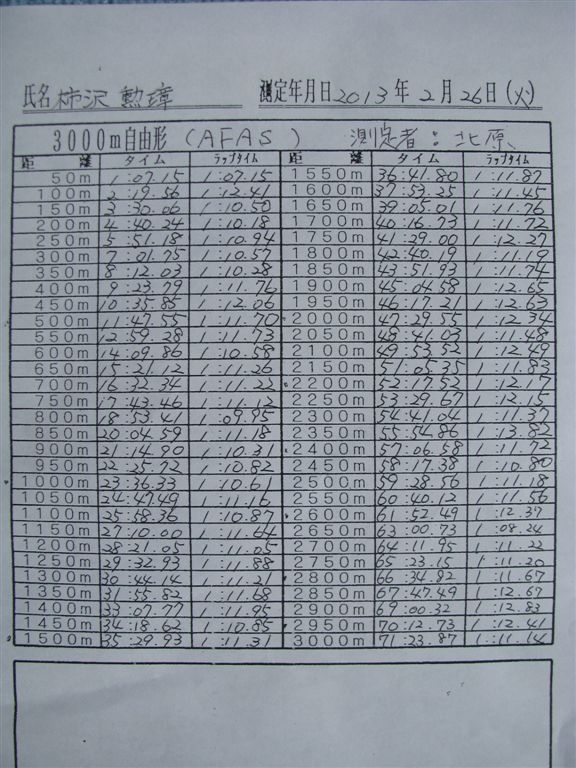 氏名 柿沢 勲璋 測定年月日 2013年 2月 26日(火)
3000m自由形 (AFAS) 測定者：北原
距離 タイム ラップタイム 距離 タイム ラップタイム
50m 1:07.15 1:07.15 1550m 36:41.80 1:11.87
100m 2:19.56 1:12.41 1600m 37:53.25 1:11.45
150m 3:30.06 1:10.50 1650m 39:05.01 1:11.76
200m 4:40.24 1:10.18 1700m 40:16.73 1:11.72
250m 5:51.18 1:10.94 1750m 41:29.00 1:12.27
300m 7:01.75 1:10.57 1800m 42:40.19 1:11.19
350m 8:12.03 1:10.28 1850m 43:51.93 1:11.74
400m 9:23.79 1:11.76 1900m 45:04.58 1:12.65
450m 10:35.85 1:12.06 1950m 46:17.21 1:12.63
500m 11:47.55 1:11.70 2000m 47:29.55 1:12.34
550m 12:59.28 1:11.73 2050m 48:41.03 1:11.48
600m 14:09.86 1:10.58 2100m 49:53.52 1:12.49
650m 15:21.12 1:11.26 2150m 51:05.35 1:11.83
700m 16:32.34 1:11.22 2200m 52:17.52 1:12.17
750m 17:43.46 1:11.12 2250m 53:29.67 1:12.15
800m 18:53.41 1:09.95 2300m 54:41.04 1:11.37
850m 20:04.59 1:11.18 2350m 55:54.86 1:13.82
900m 21:14.90 1:10.31 2400m 57:06.58 1:11.72
950m 22:25.72 1:10.82 2450m 58:17.38 1:10.80
1000m 23:36.33 1:10.61 2500m 59:28.56 1:11.18
1050m 24:47.49 1:11.16 2550m 60:40.12 1:11.56
1100m 25:58.36 1:10.87 2600m 61:52.49 1:12.37
1150m 27:10.00 1:11.64 2650m 63:00.73 1:08.24
1200m 28:21.05 1:11.05 2700m 64:11.95 1:11.22
1250m 29:32.93 1:11.88 2750m 65:23.15 1:11.20
1300m 30:44.14 1:11.21 2800m 66:34.82 1:11.67
1350m 31:55.82 1:11.68 2850m 67:47.49 1:12.67
1400m 33:07.77 1:11.95 2900m 69:00.32 1:12.83
1450m 34:18.62 1:10.85 2950m 70:12.73 1:12.41
1500m 35:29.93 1:11.31 3000m 71:23.87 1:11.14